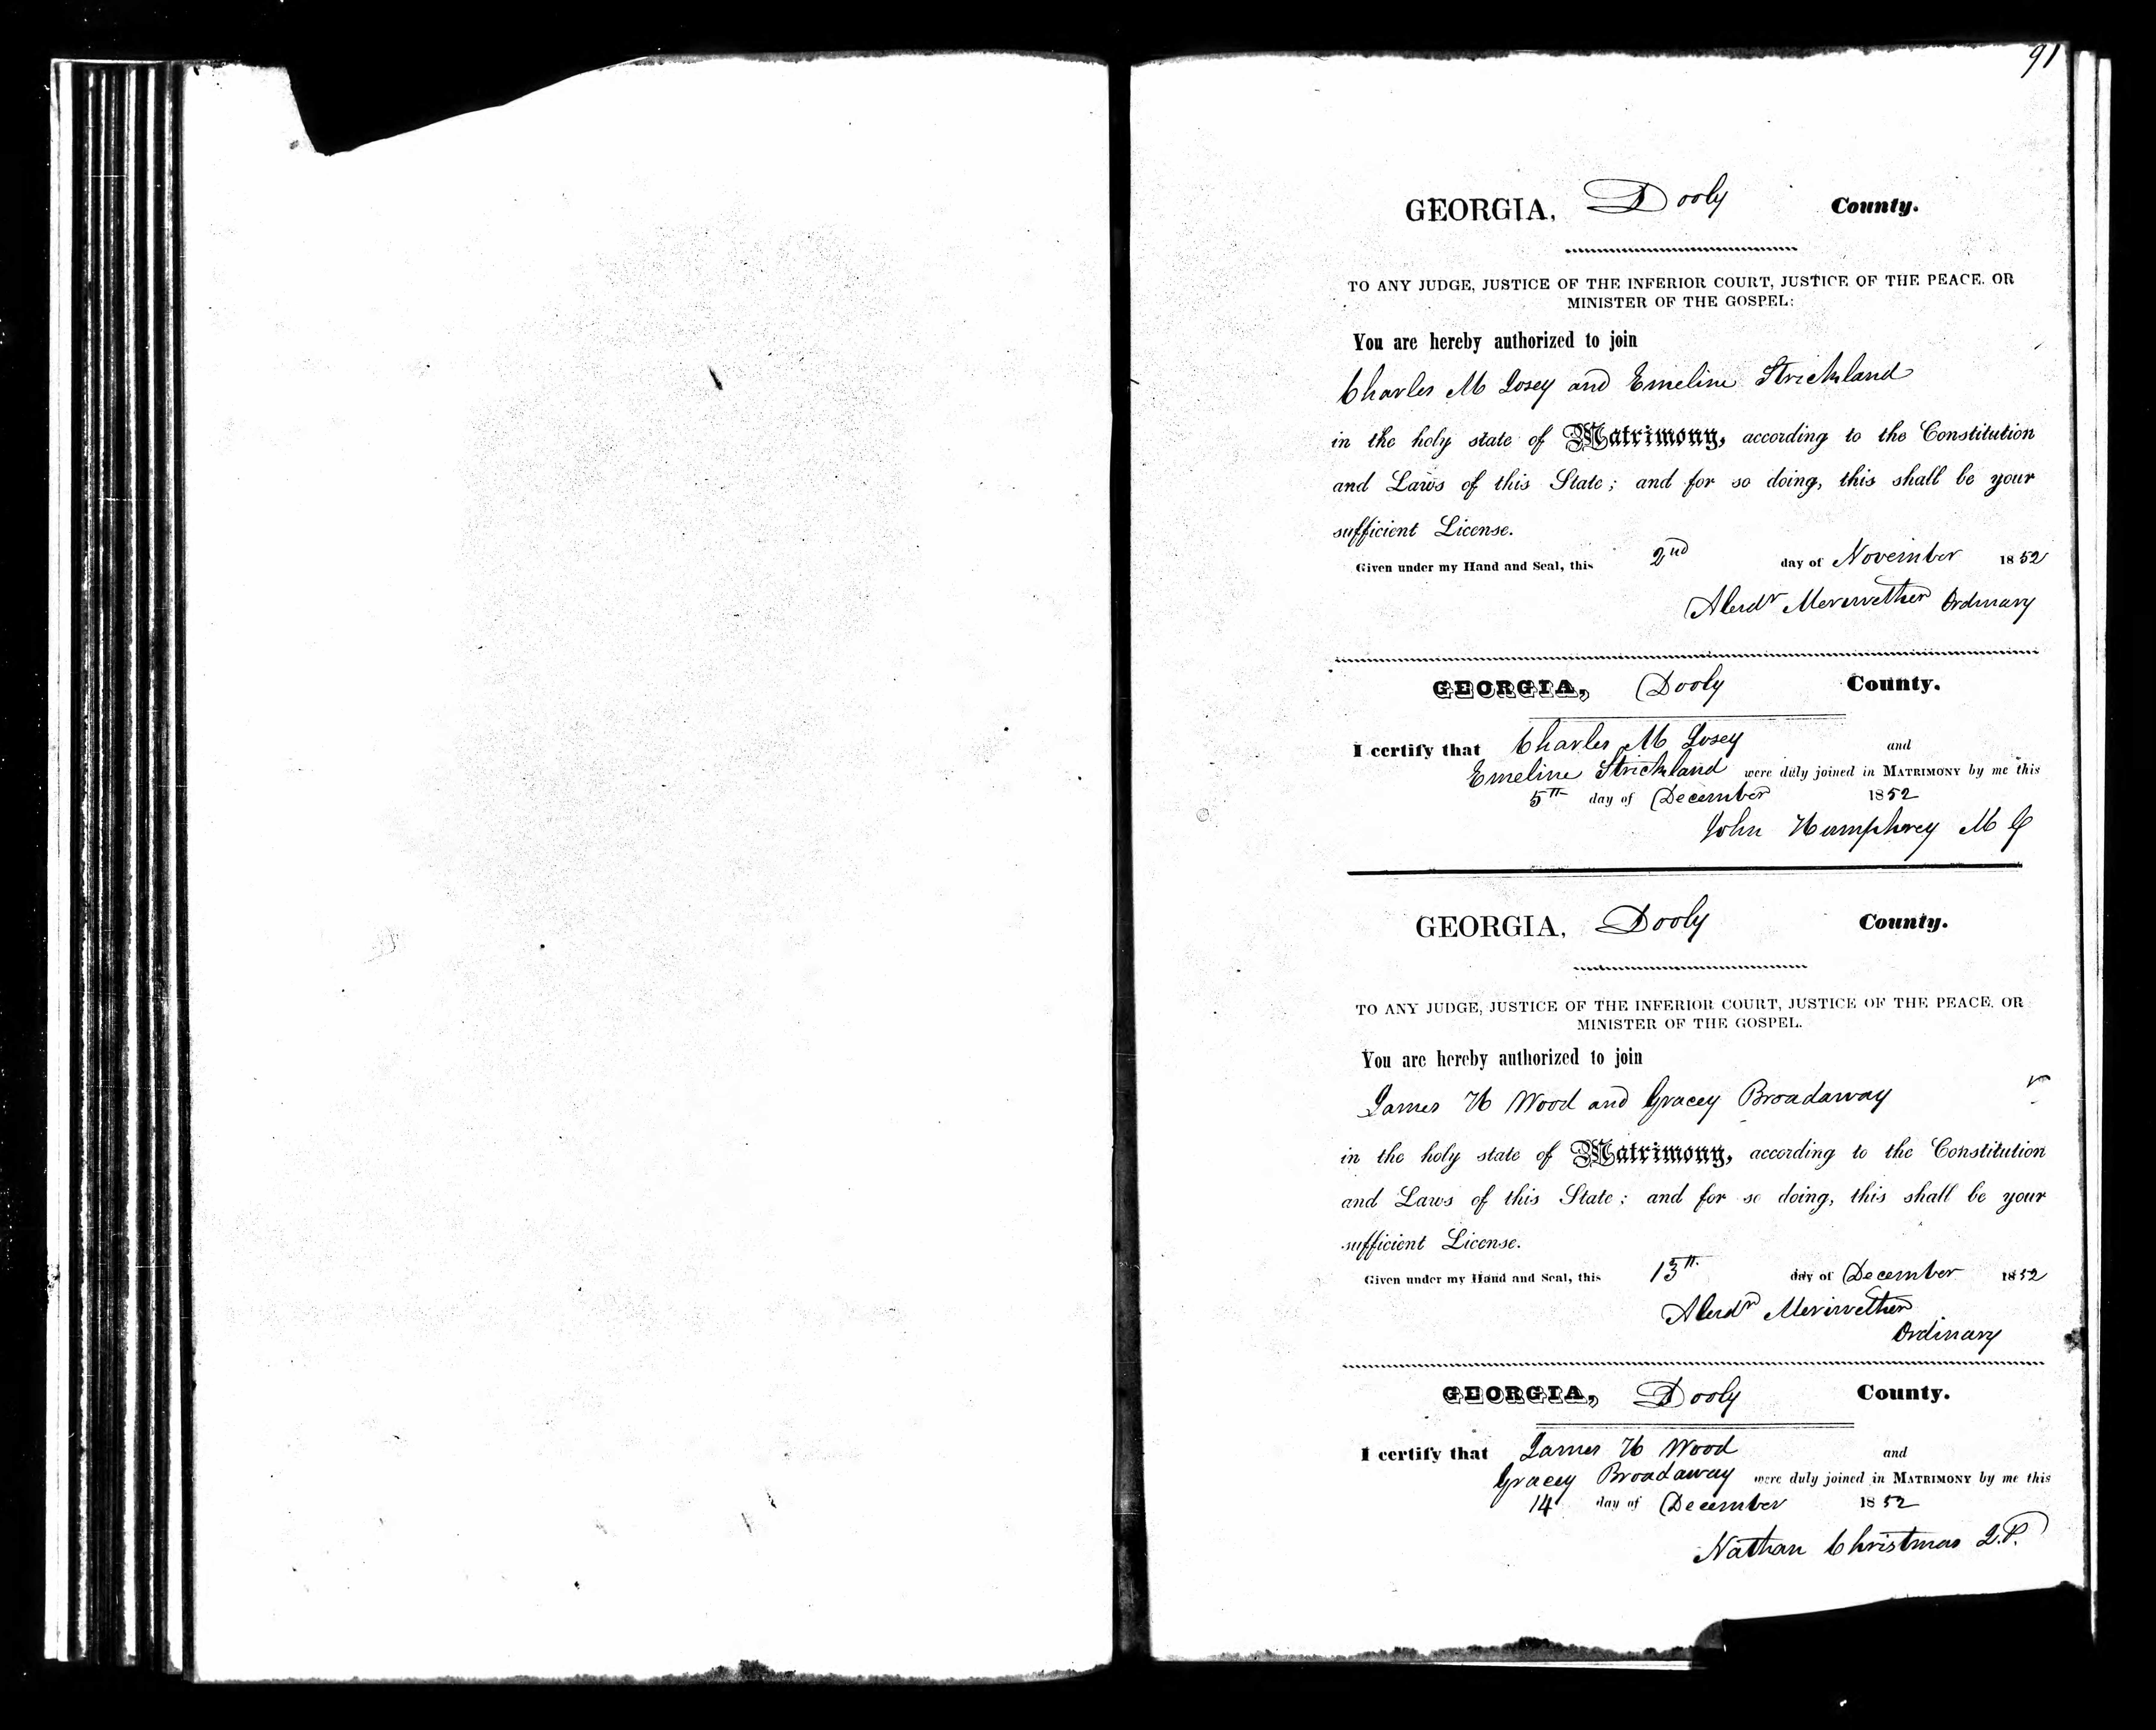 91
GEORGIA, Dooly County.
TO ANY JUDGE, JUSTICE OF THE INFERIOR COURT, JUSTICE OF THE PEACE, OR
MINISTER OF THE GOSPEL:
You are hereby authorized to join
Charles M Josey and Emeline Strickland
in the holy state of Matrimony, according to the Constitution
and Laws of this State; and for so doing, this shall be your
sufficient License.
Given under my Hand and Seal, this 2nd day of November 1852
Alexdr Meriwether Ordinary
GEORGIA, Dooly County.
I certify that Charles M Josey and
Emeline Strickland were duly joined in MATRIMONY by me this
5th day of December 1852
John Humphrey M G
GEORGIA, Dooly County.
TO ANY JUDGE, JUSTICE OF THE INFERIOR COURT, JUSTICE OF THE PEACE, OR
MINISTER OF THE GOSPEL.
You are hereby authorized to join
James H Wood and Gracey Broadaway
in the holy state of Matrimony, according to the Constitution
and Laws of this State; and for so doing, this shall be your
sufficient License.
Given under my Hand and Seal, this 13th day of December 1852
Alexdr Meriwether
Ordinary
GEORGIA, Dooly County.
I certify that James H Wood and
Gracey Broadaway were duly joined in MATRIMONY by me this
14 day of December 1852
Nathan Christmas J.P.